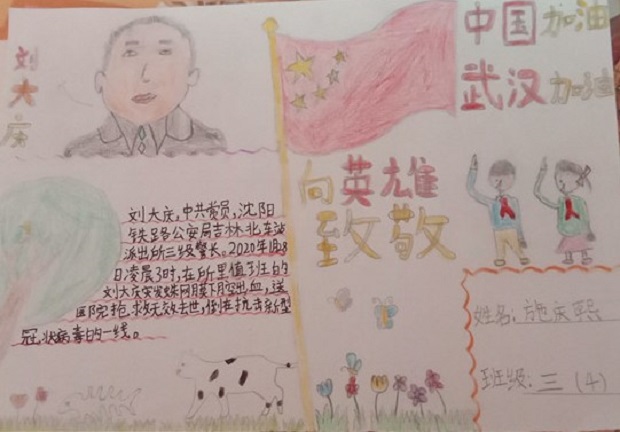 刘大庆
中国加油
武汉加油
向英雄
致敬
刘大庆,中共党员,沈阳
铁路公安局吉林北车站
派出所三级警长。2020年1月28
日凌晨3时,在所里值班的
刘大庆突发蛛网膜下腔出血,送
医院抢救无效去世,倒在抗击新型
冠状病毒的一线。
姓名:施庆熙
班级:三(4)